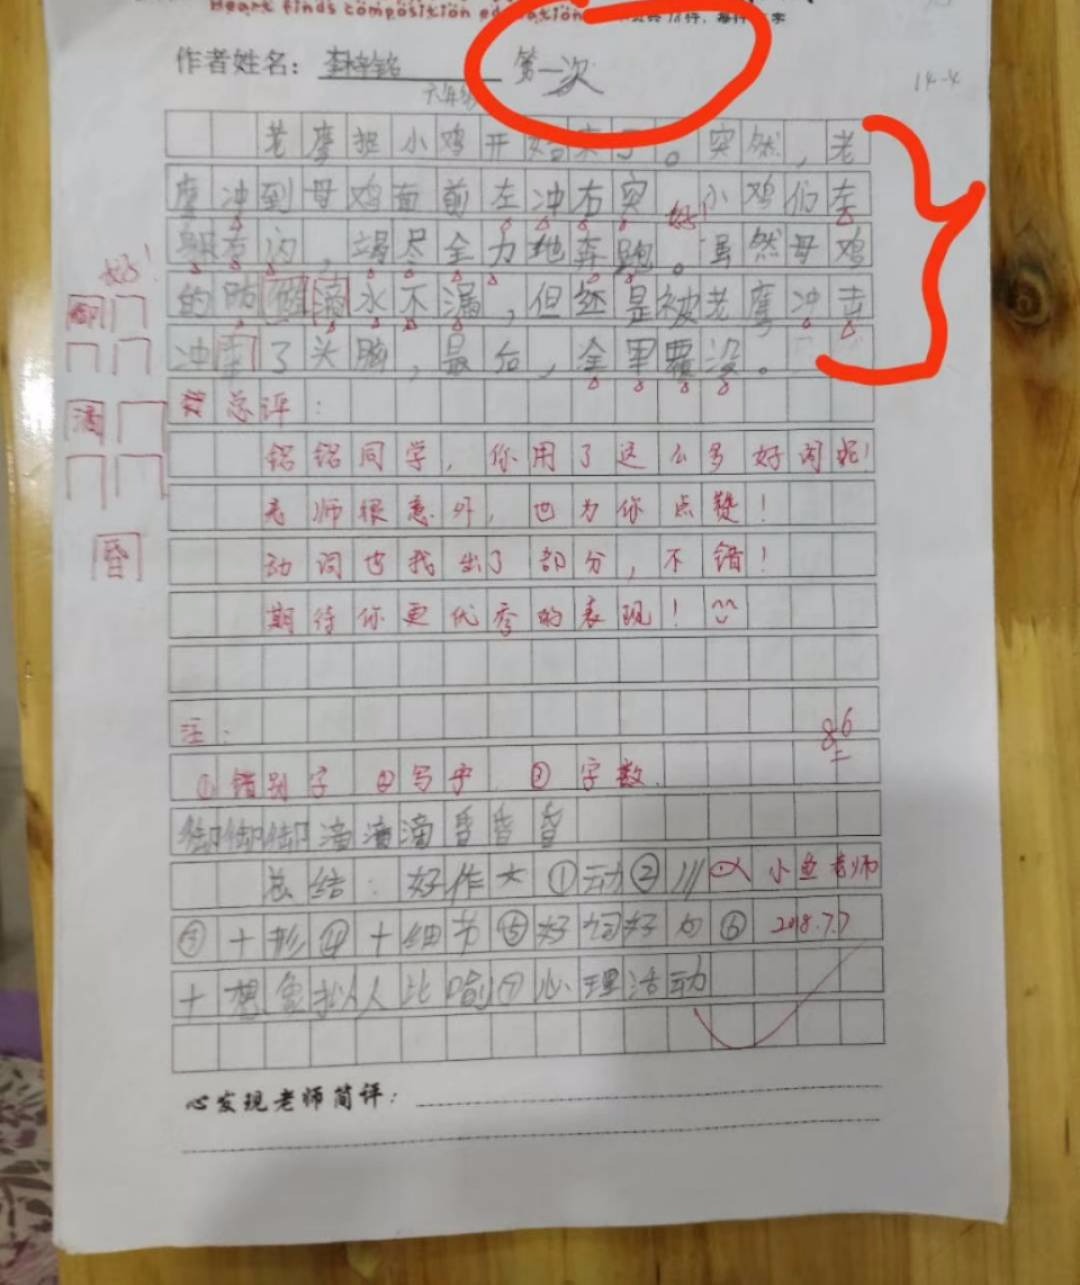 Heart finds composition education
作者姓名：李梓铭 第一次
六年级
14-4
老鹰抓小鸡开始了。突然，老
鹰冲到母鸡面前左冲右突。小鸡们左
躲右闪，竭尽全力地奔跑。虽然母鸡
好！
的防御滴水不漏，但还是被老鹰冲击
冲昏了头脑，最后，全军覆没。
御
滴
昏
总评：
铭铭同学，你用了这么多好词呢！
老师很意外，也为你点赞！
动词也找出了部分，不错！
期待你更优秀的表现！
注：
86
①错别字 ②写字 ③字数
御御御滴滴滴昏昏昏
总结：好作文①动② 小鱼老师
③十形④十细节⑤好词好句⑥ 2018.7.7
十想象拟人比喻⑦心理活动
心发现老师简评：